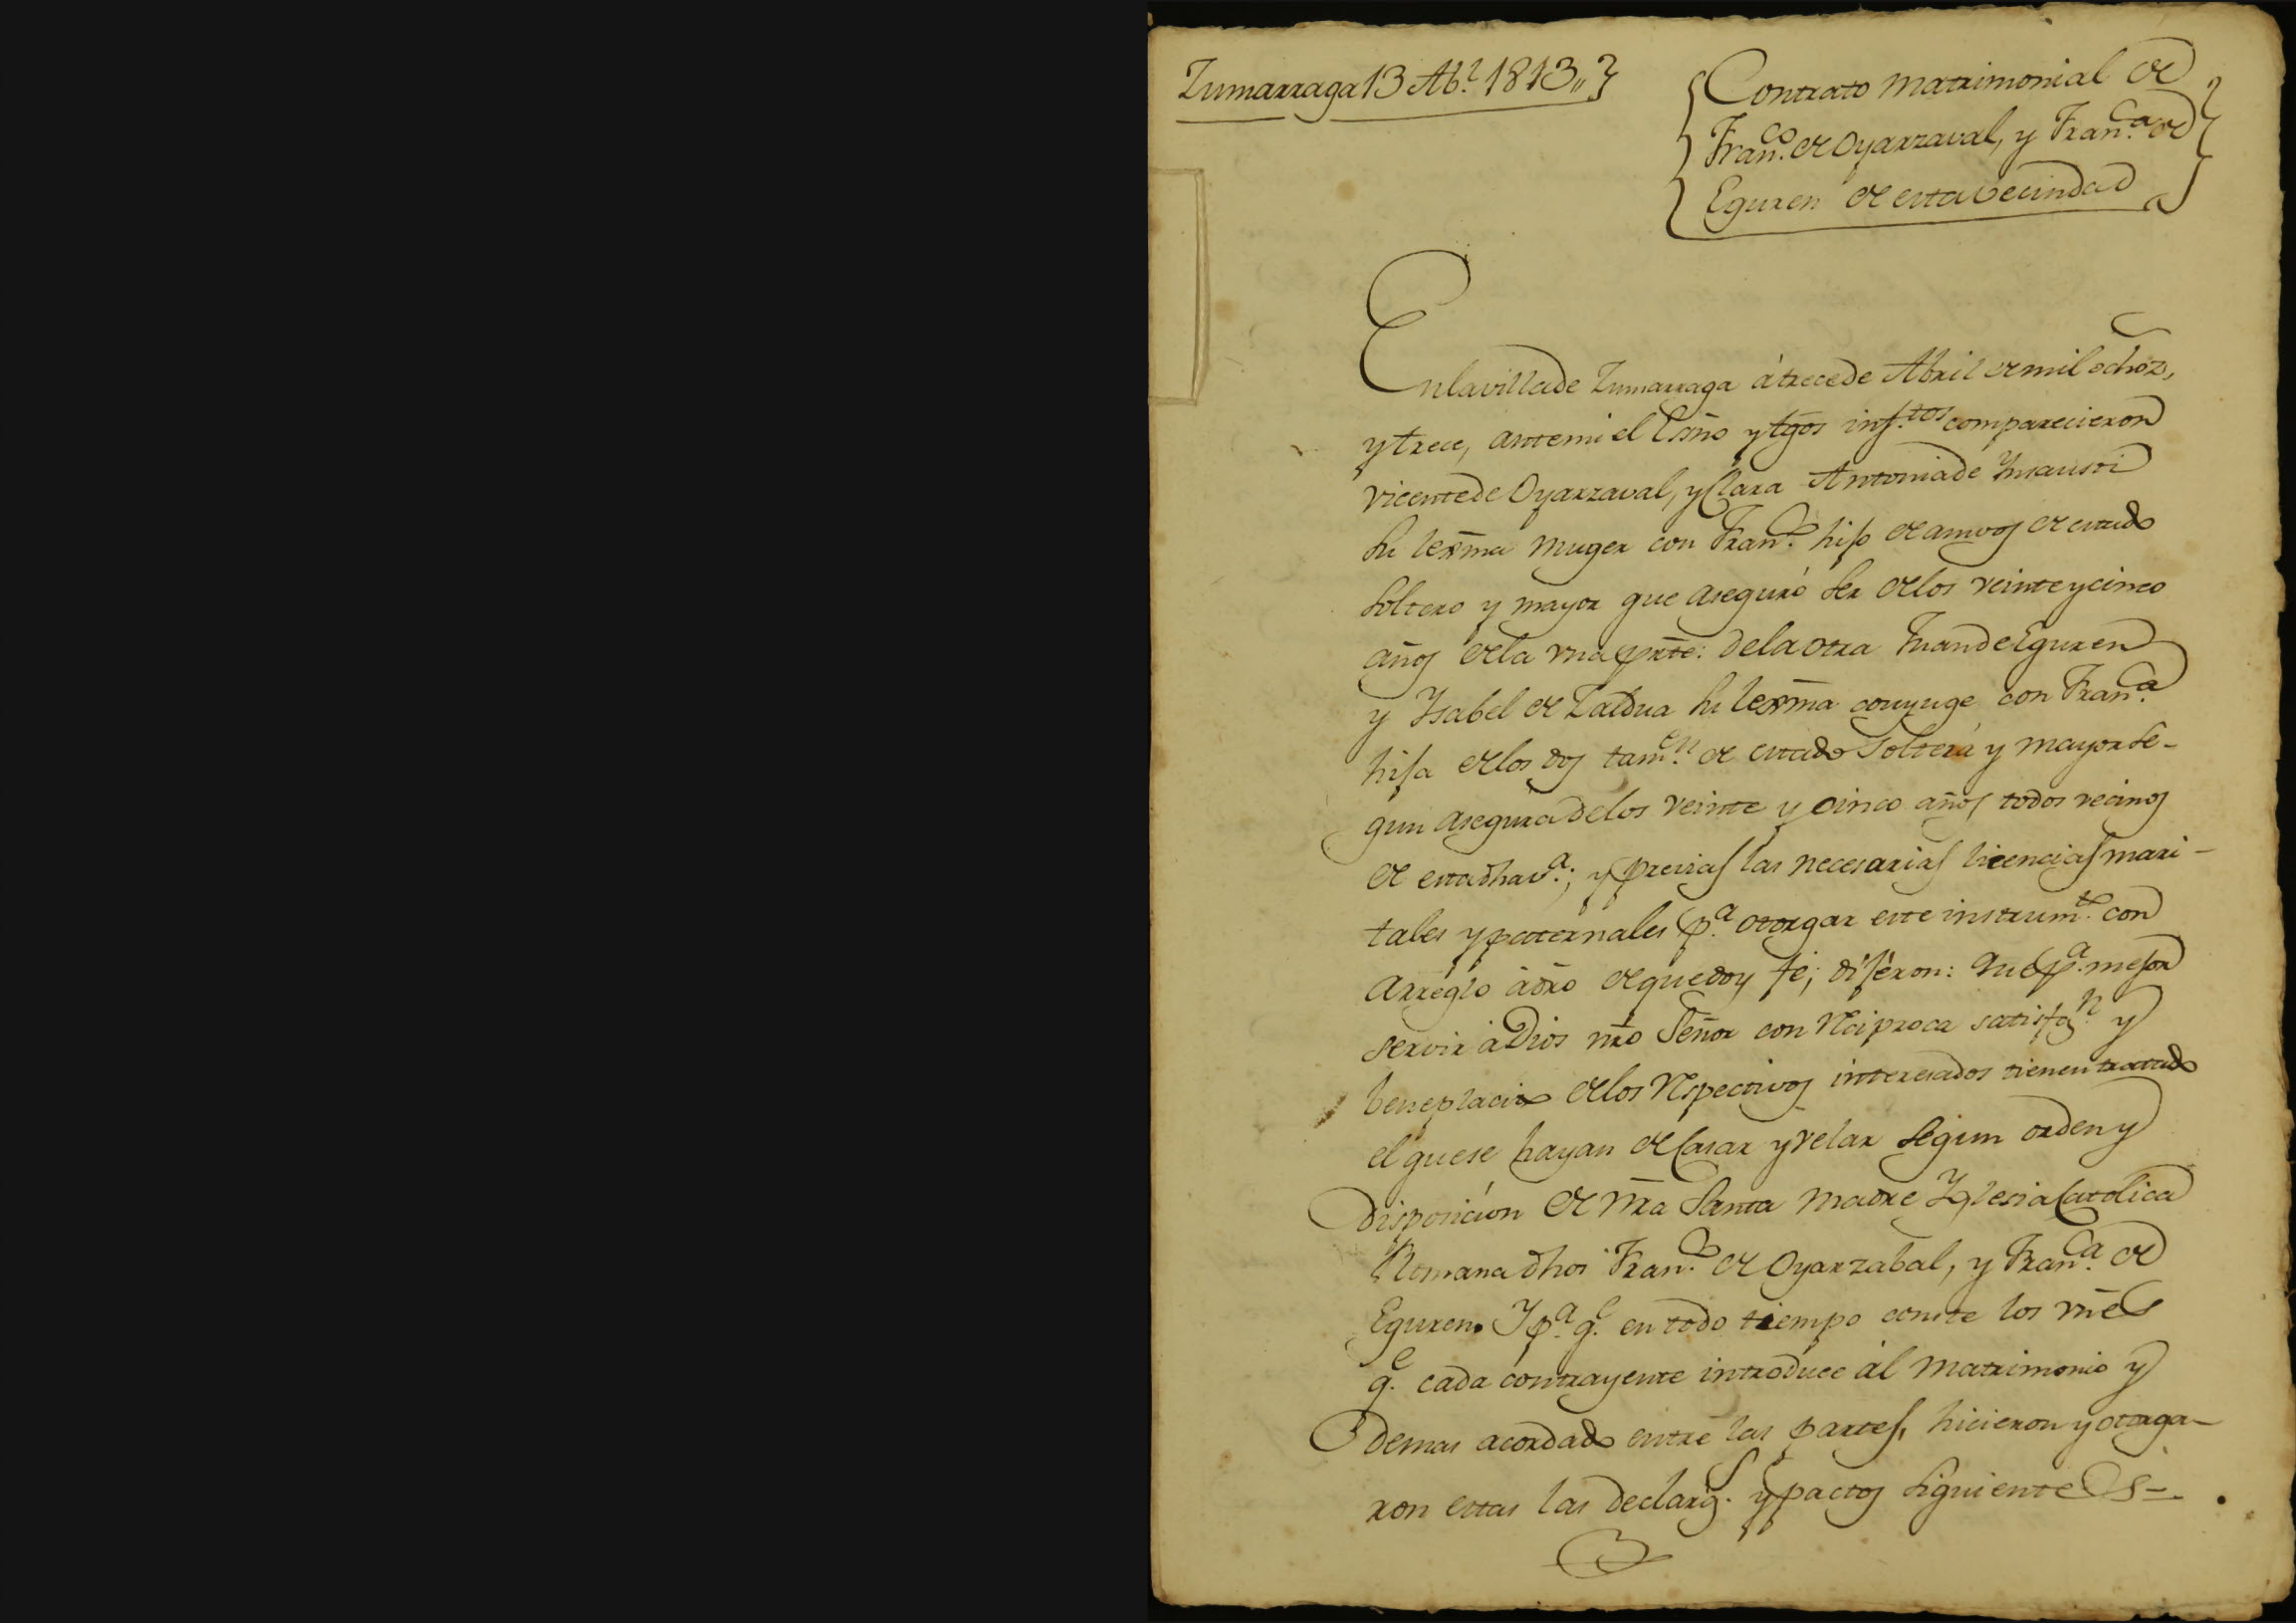 Zumarraga 13 Ab.l 1813,,
Contrato matrimonial de
Fran.co de Oyarzaval, y Fran.ca de
Eguren de esta vecindad
En la villa de Zumarraga á trece de Abril de mil ochoz.s
y trece, ante mi el Esño y tgos inf.tos comparecieron
Vicente de Oyarzaval, y Clara Antonia de Ynsausti
su lexma muger con Fran.co hijo de amvos de estado
soltero y mayor que aseguró ser de los veinte y cinco
años de la vna prte: de la otra Juan de Eguren
y Ysabel de Zaldua su lexma conyuge con Fran.ca
hija de los dos tam.en de estado soltera y mayor se-
gun asegura de los veinte y cinco años todos vecinos
de esta dha v.a; y previas las necesarias licencias mari-
tales y paternales p.a otorgar este instrum.to con
arreglo á dro de que doy fé; dijéron: Que p.a mejor
servir á Dios nro Señor con reciproca satisfaz.n y
beneplacito de los respectivos interesados tienen tratado
el que se hayan de casar y velar segun orden y
disposición de nra Santa Madre Yglesia Catolica
Romana dhos Fran.co de Oyarzabal, y Fran.ca de
Eguren. Y p.a q.e en todo tiempo conste los vnes
q.e cada contrayente introduce ál matrimonio y
demas acordado entre las partes, hicieron y otorga-
ron estas las declaraz.s y pactos siguientes=.